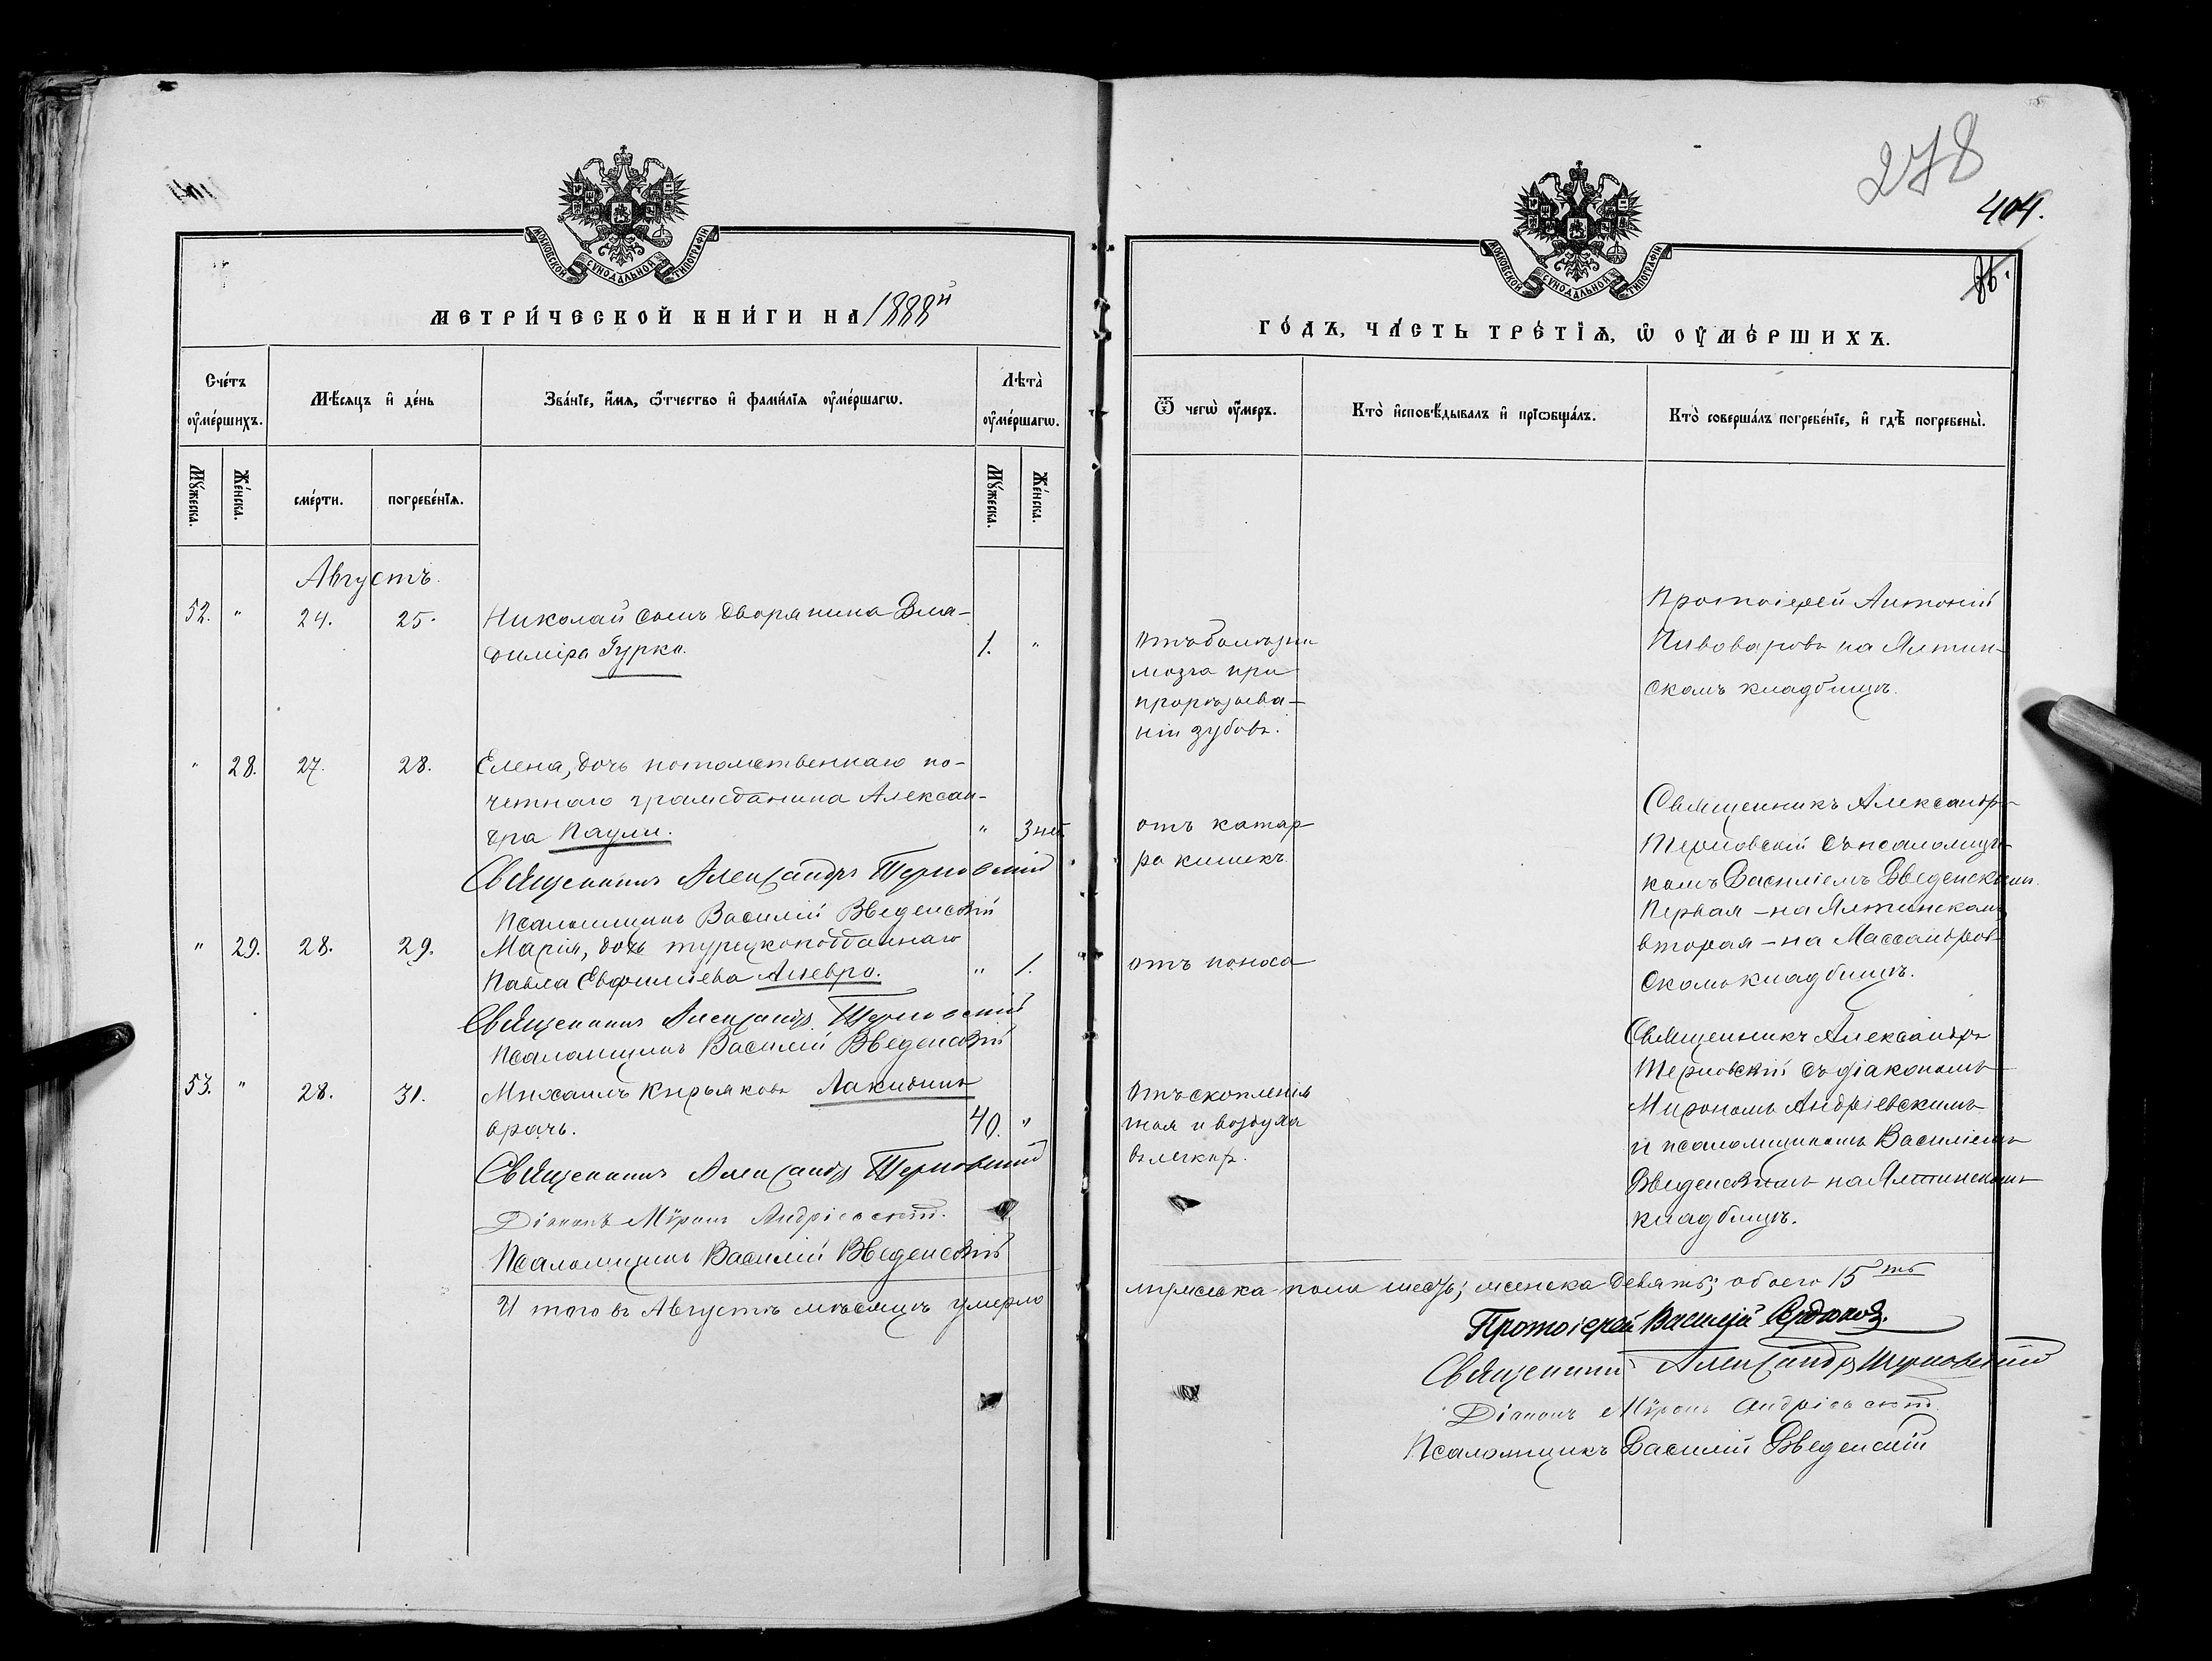 278
404.
МОСКОВСКОЙ СѴНОДАЛЬНОЙ ТИПОГРАФІИ
МЕТРИ́ЧЕСКОЙ КНИ́ГИ НА 1888й
Сче́тъ оу҆ме́ршихъ.
Мѣ́сяцъ и҆ де́нь
Зва́нїе, и҆́мя, ѻ҆́тчество и҆ фами́лїя оу҆ме́ршагѡ.
Лѣта̀ оу҆ме́ршагѡ.
Мꙋ́жеска.
Же́нска.
сме́рти.
погребе́нїѧ.
Мꙋ́жеска.
Же́нска.
Августъ.
52. " 24. 25. Николай сынъ дворянина Вла-
диміра Гурко. 1. "
" 28. 27. 28. Елена, дочь потомственнаго по-
четнаго гражданина Алексан-
дра Паули. " 3 
Священникъ Александръ Терновскій
Псаломщикъ Василій Введенскій
" 29. 28. 29. Марія, дочь турецкоподданнаго
Павла Евфиміева " 1.
Священникъ Александръ Терновскій
Псаломщикъ Василій Введенскій
53. " 28. 31. Михаилъ Кирьяковъ Лакидинъ
врачь. 40. "
Священникъ Александръ Терновскій
Діаконъ Мѵронъ Андріевскій.
Псаломщикъ Василій Введенскій
Итого въ Августѣ мѣсяцѣ умерло
МОСКОВСКОЙ СѴНОДАЛЬНОЙ ТИПОГРАФІИ
ГО́ДЪ, ЧА́СТЬ ТРЕ́ТЇѦ, Ѡ҆ ОУ҆МЕ́РШИХЪ.
Ѿ чегѡ̀ оу҆́меръ.
Кто̀ и҆сповѣ́дывалъ и҆ прїѡбща́лъ.
Кто̀ соверша́лъ погребе́нїе, и҆ гдѣ̀ погребены̀.
Отъ болѣзни
мозга при
прорѣзыва-
ніи зубовъ.
Протоіерей Антоній
Пивоваровъ на Ялтин-
скомъ кладбищѣ.
отъ катар-
ра кишекъ.
Священникъ Александръ
Терновскій съ псаломщи-
комъ Василіемъ Введенскимъ.
Первая - на Ялтинскомъ
вторая - на Массандров-
скомъ кладбищѣ.
отъ поноса
Отъ скопленія
гноя и воздуха
въ легкихъ.
Священникъ Александръ
Терновскій съ діакономъ
Мирономъ Андріевскимъ
и псаломщикомъ Василіемъ
Введенскимъ на Ялтинскомъ
кладбищѣ.
мужеска пола шесть; женска девять; обоего 15ть
Протоіерей Василій
Священникъ Александръ Терновскій
Діаконъ Мѵронъ Андріевскій.
Псаломщикъ Василій Введенскій